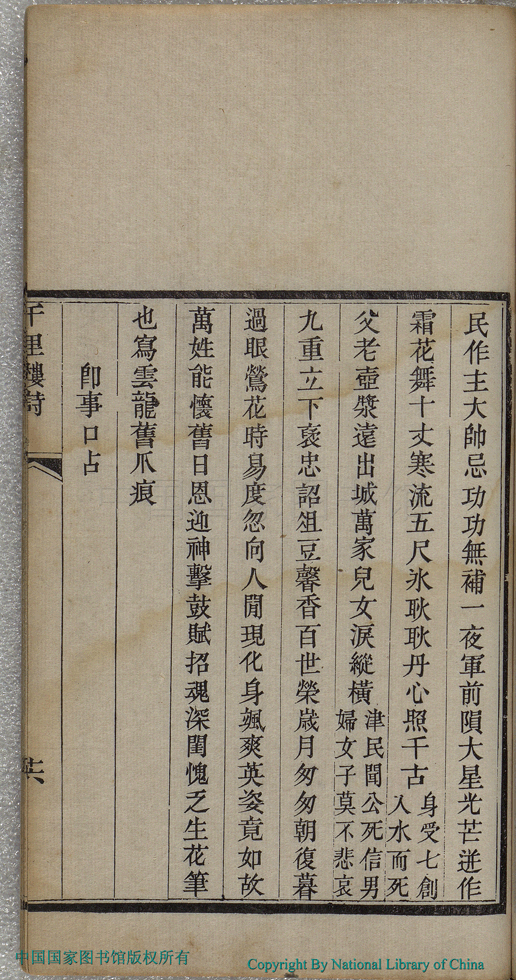 民作主大帥忌功功無補一夜軍前隕大星光芒迸作
霜花舞十丈寒流五尺氷耿耿丹心照千古身受七創入水而死
父老壺漿遠出城萬家兒女淚縱橫津民聞公死信男婦女子莫不悲哀
九重立下褒忠詔俎豆馨香百世榮歲月匆匆朝復暮
過眼鶯花時易度忽向人間現化身颯爽英姿竟如故
萬姓能懷舊日恩迎神擊鼓賦招魂深閨愧乏生花筆
也寫雲龍舊爪痕
卽事口占
千里樓詩
中国国家图书馆版权所有
Copyright By National Library of China